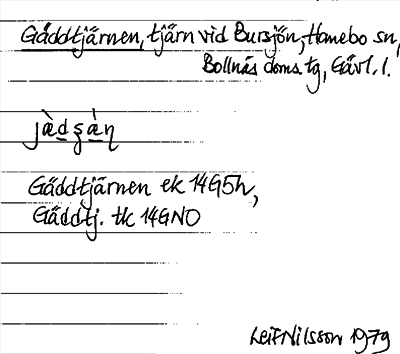 Gäddtjärnen, tjärn vid Bursjön, Hanebo sn,
Bollnäs doms.tg, Gävl. l.
jàdʂàn
Gäddtjärnen ek 14G5h,
Gäddtj. tk 14GNO
Leif Nilsson 1979